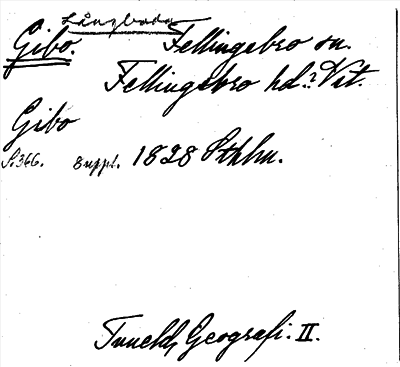 Långboda
Gibo. Fellingsbro sn.
Fellingsbro hd.: Vst.
Gibo
S. 366. Suppl. 1828 Sthlm.
Tunelds Geografi. II.